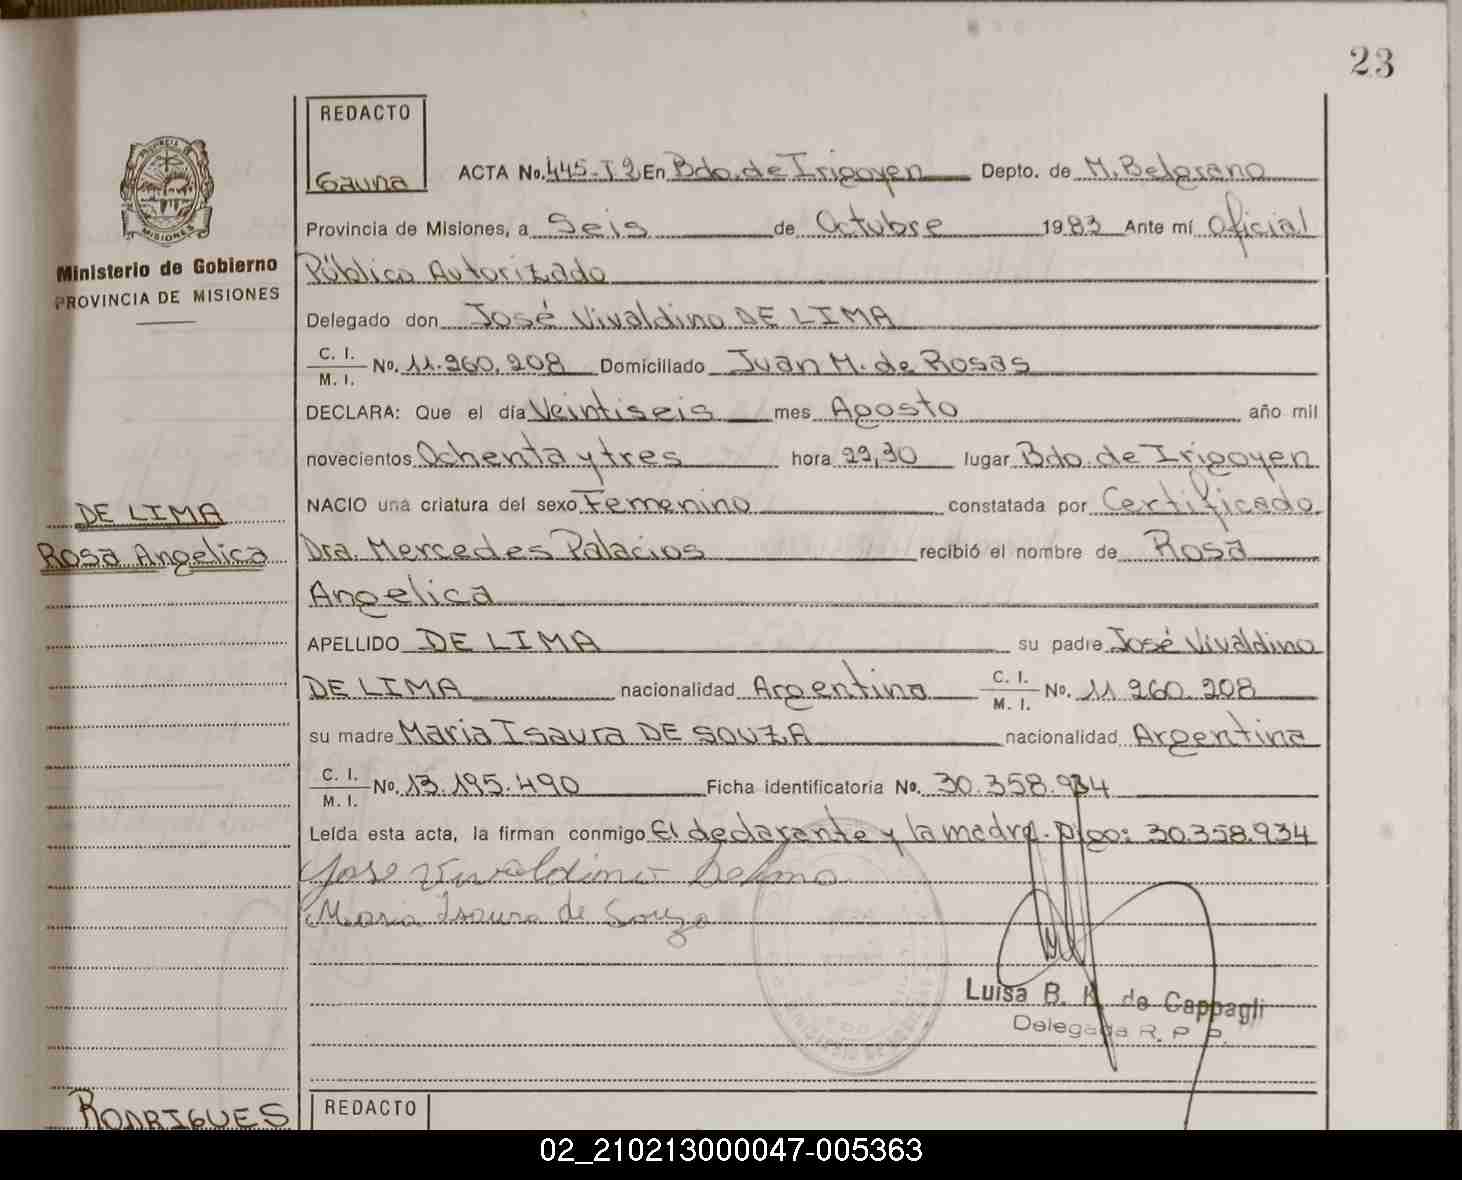 23
REDACTO
Gauna
ACTA No. 445-T2 En Bdo. de Irigoyen Depto. de M. Belgrano
Provincia de Misiones, a Seis de Octubre 1983 Ante mí Oficial
Público Autorizado
Delegado don José Vivaldino DE LIMA
C. I.
M. I. No. 11.260.208 Domiciliado Juan M. de Rosas
DECLARA: Que el día Veintiseis mes Agosto año mil
novecientos Ochenta y tres hora 22,30 lugar Bdo. de Irigoyen
NACIO una criatura del sexo Femenino constatada por Certificado
Dra. Mercedes Palacios recibió el nombre de Rosa
Angelica
APELLIDO DE LIMA su padre José Vivaldino
DE LIMA nacionalidad Argentino C. I.
M. I. No. 11.260.208
su madre Maria Isaura DE SOUZA nacionalidad Argentina
C. I.
M. I. No. 13.195.490 Ficha identificatoria No. 30.358.934
Leída esta acta, la firman conmigo El declarante y la madre. 30.358.934
Jose Vivaldino Delima
Maria Isaura de Souza
Luisa B. K. de Cappagli
Delegada R. P. P.
PROVINCIA DE
MISIONES
Ministerio de Gobierno
PROVINCIA DE MISIONES
DE LIMA
Rosa Angelica
RODRIGUES
REDACTO
02_210213000047-005363